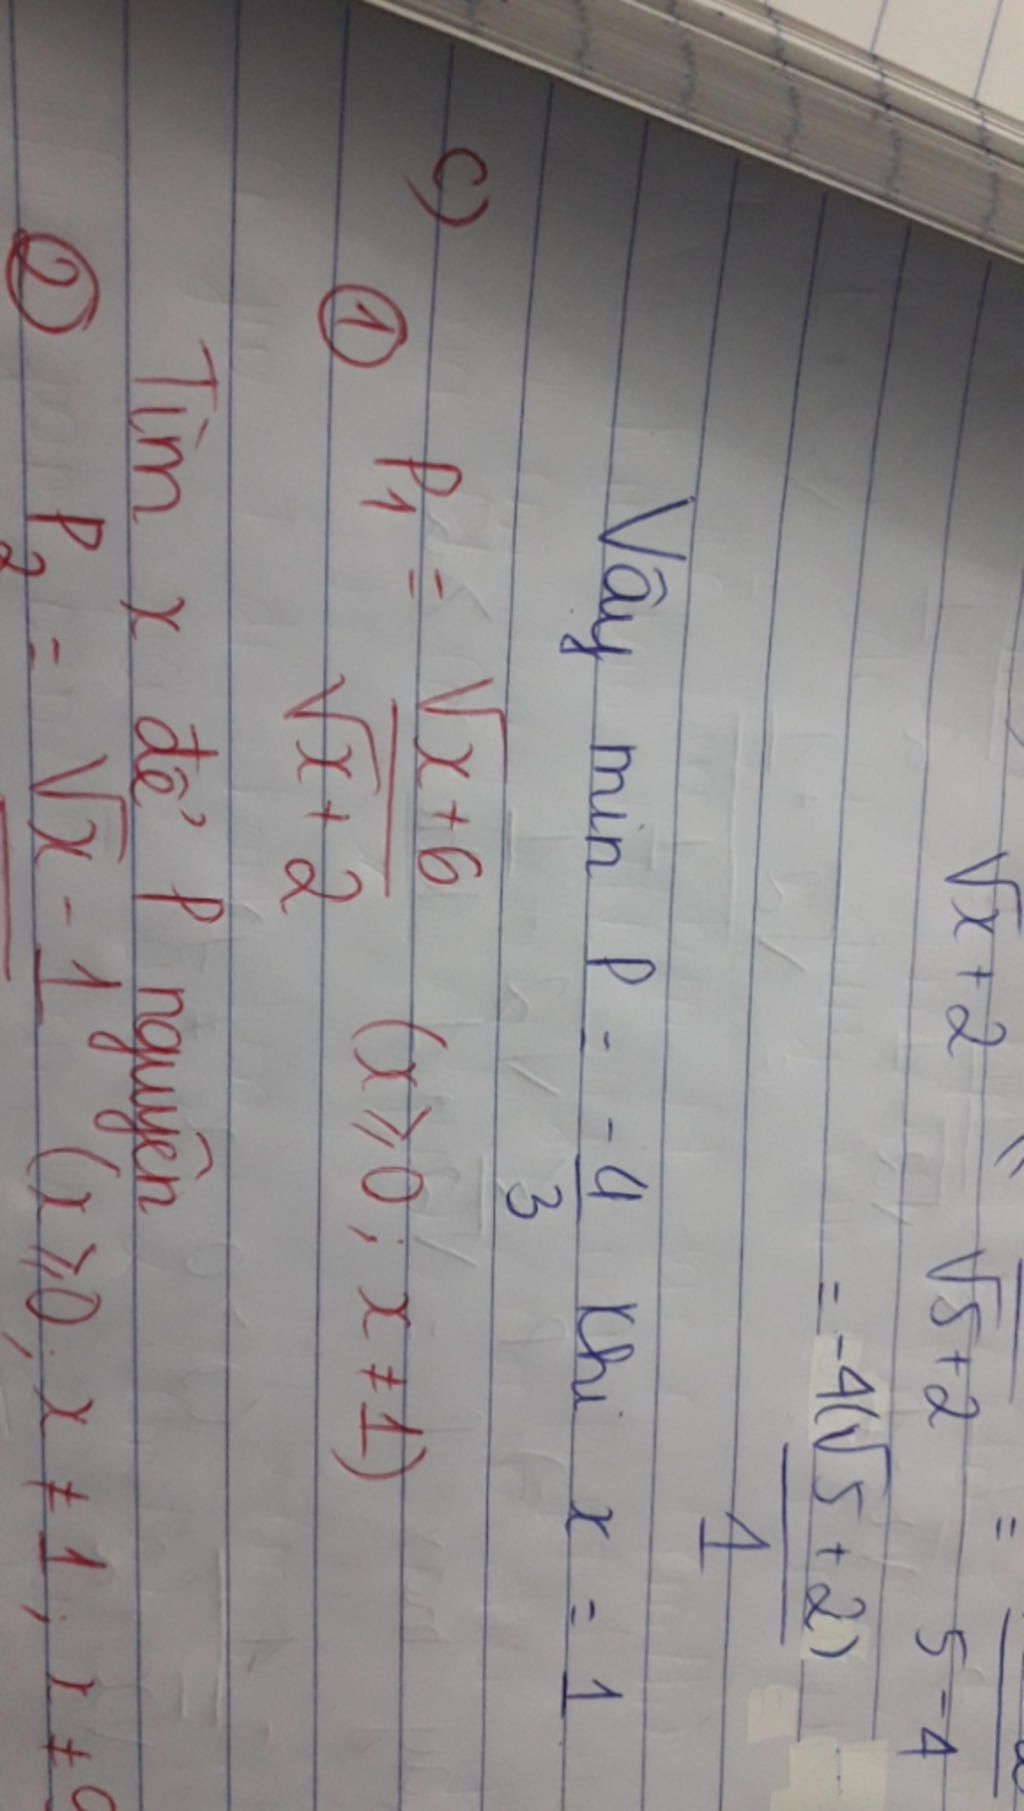 √x + 2
√5 + 2
=
5 - 4
= -4(√5 + 2)
1
Vậy min P = -4/3 khi x = 1
c)
① P₁ = (√x + 6)/(√x + 2) (x ⩾ 0 ; x ≠ 1)
Tìm x để P nguyên
② P₂ = √x - 1 (x ⩾ 0, x ≠ 1, x ≠